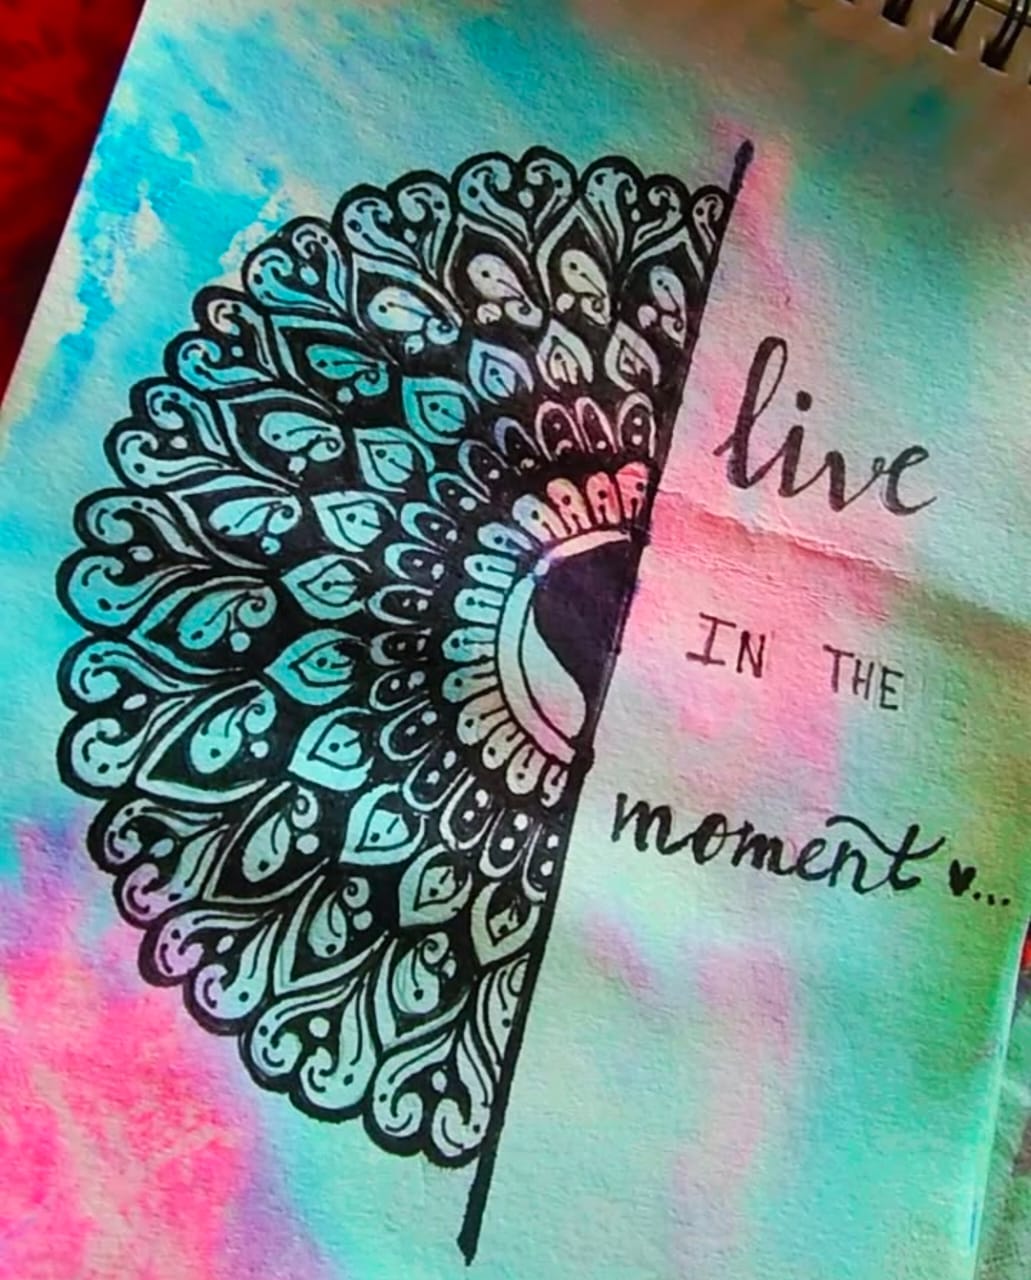 live
IN THE
moment ♥...